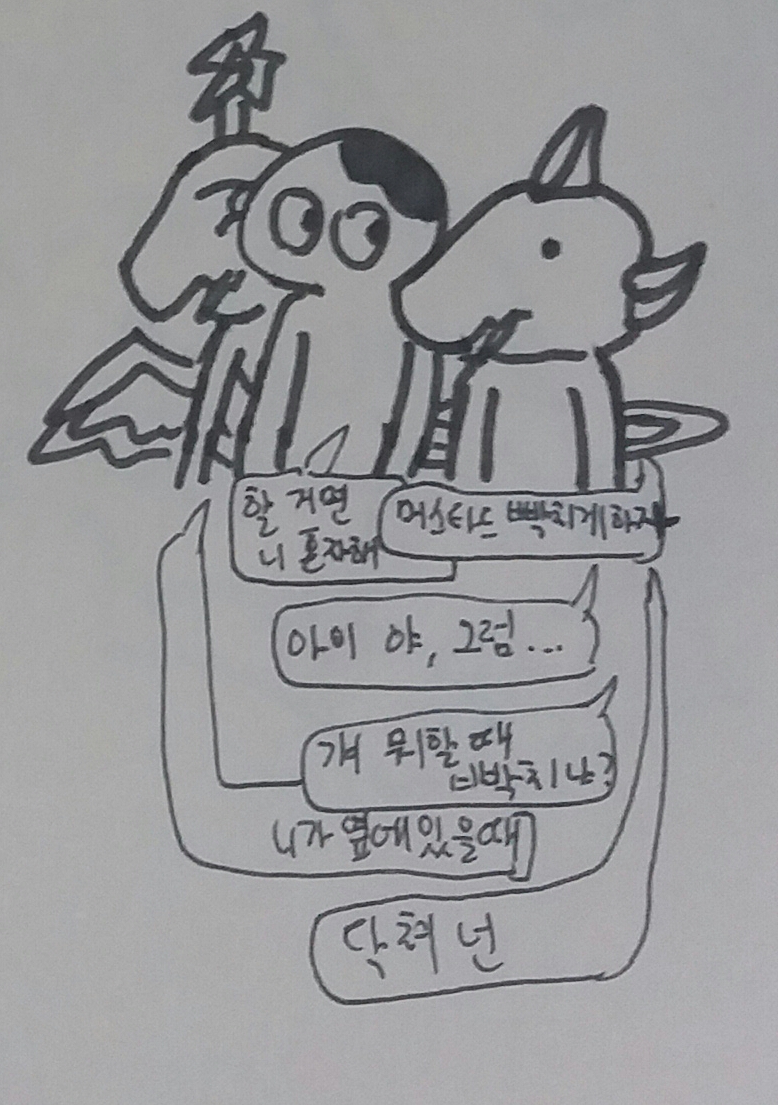 할 거면
니 혼자해
머스타드 빡치게 하자
아이 야, 그럼...
걔 뭐할 때
빡치냐?
니가 옆에있을때
닥쳐 넌